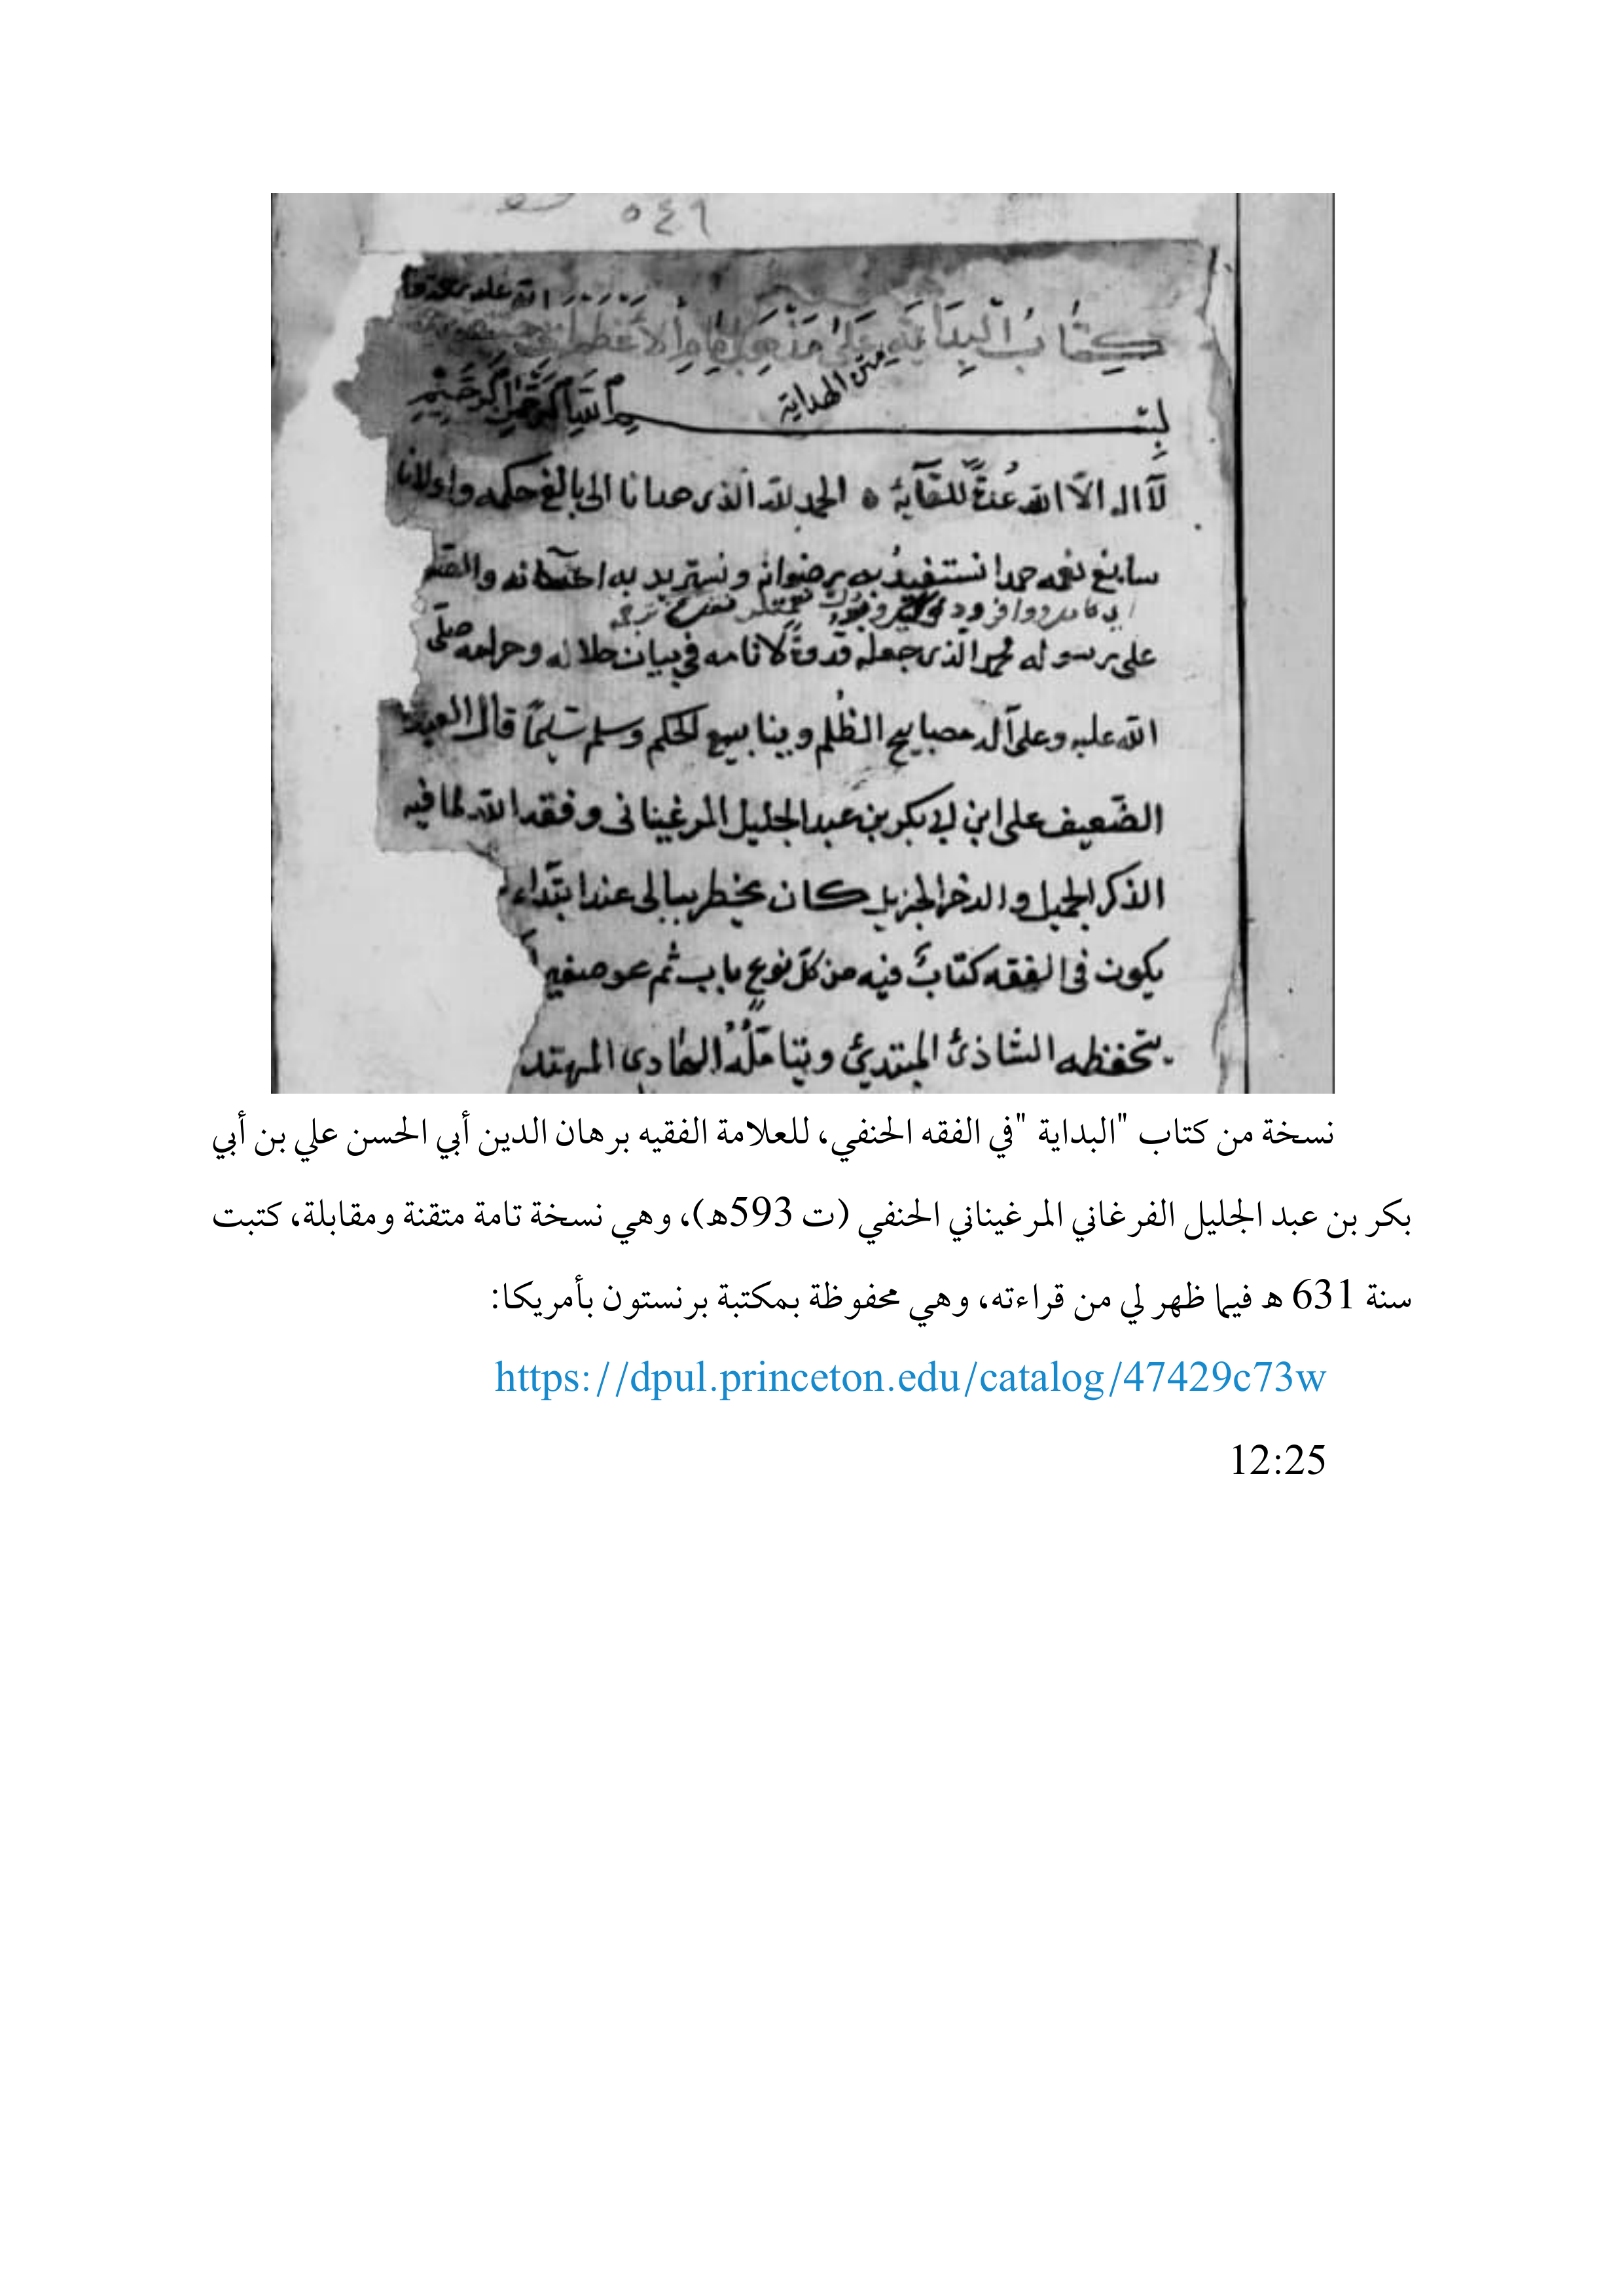 ٥٤٦
كتاب البداية على مذهب الإمام الأعظم
متن الهداية
بسم الله الرحمن الرحيم
لآ اله الّا الله عُدةً للقآئه ه الحمد لله الذى هدانا الى بالغ حكمه واولانا
سابغ نعمه حمدا نستفيد به رضوانه ونستزيد به احسانه والصلوة
على رسوله محمد الّذى جعله قدوةً لانامه فى بيان حلاله وحرامه صلّى
الله عليه وعلى آله مصابيح الظُلم وينابيع الحكم وسلم تسليمًا قال العبد
الضّعيف على ابن ابى بكر بن عبد الجليل المرغينانى وفقه الله لما فيه
الذكر الجميل والدخر الجزيل كان يخطر ببالى عند ابتداء
يكون فى الفقه كتابٌ فيه من كلّ نوعٍ باب ثم هو صغير
يتحفظه الشاذئ المبتدئ ويتامّلُهُ الهادى المهتد
نسخة من كتاب "البداية "في الفقه الحنفي، للعلامة الفقيه برهان الدين أبي الحسن علي بن أبي
بكر بن عبد الجليل الفرغاني المرغيناني الحنفي (ت 593هـ)، وهي نسخة تامة متقنة ومقابلة، كتبت
سنة 631 هـ فيما ظهر لي من قراءته، وهي محفوظة بمكتبة برنستون بأمريكا:
https://dpul.princeton.edu/catalog/47429c73w
12:25